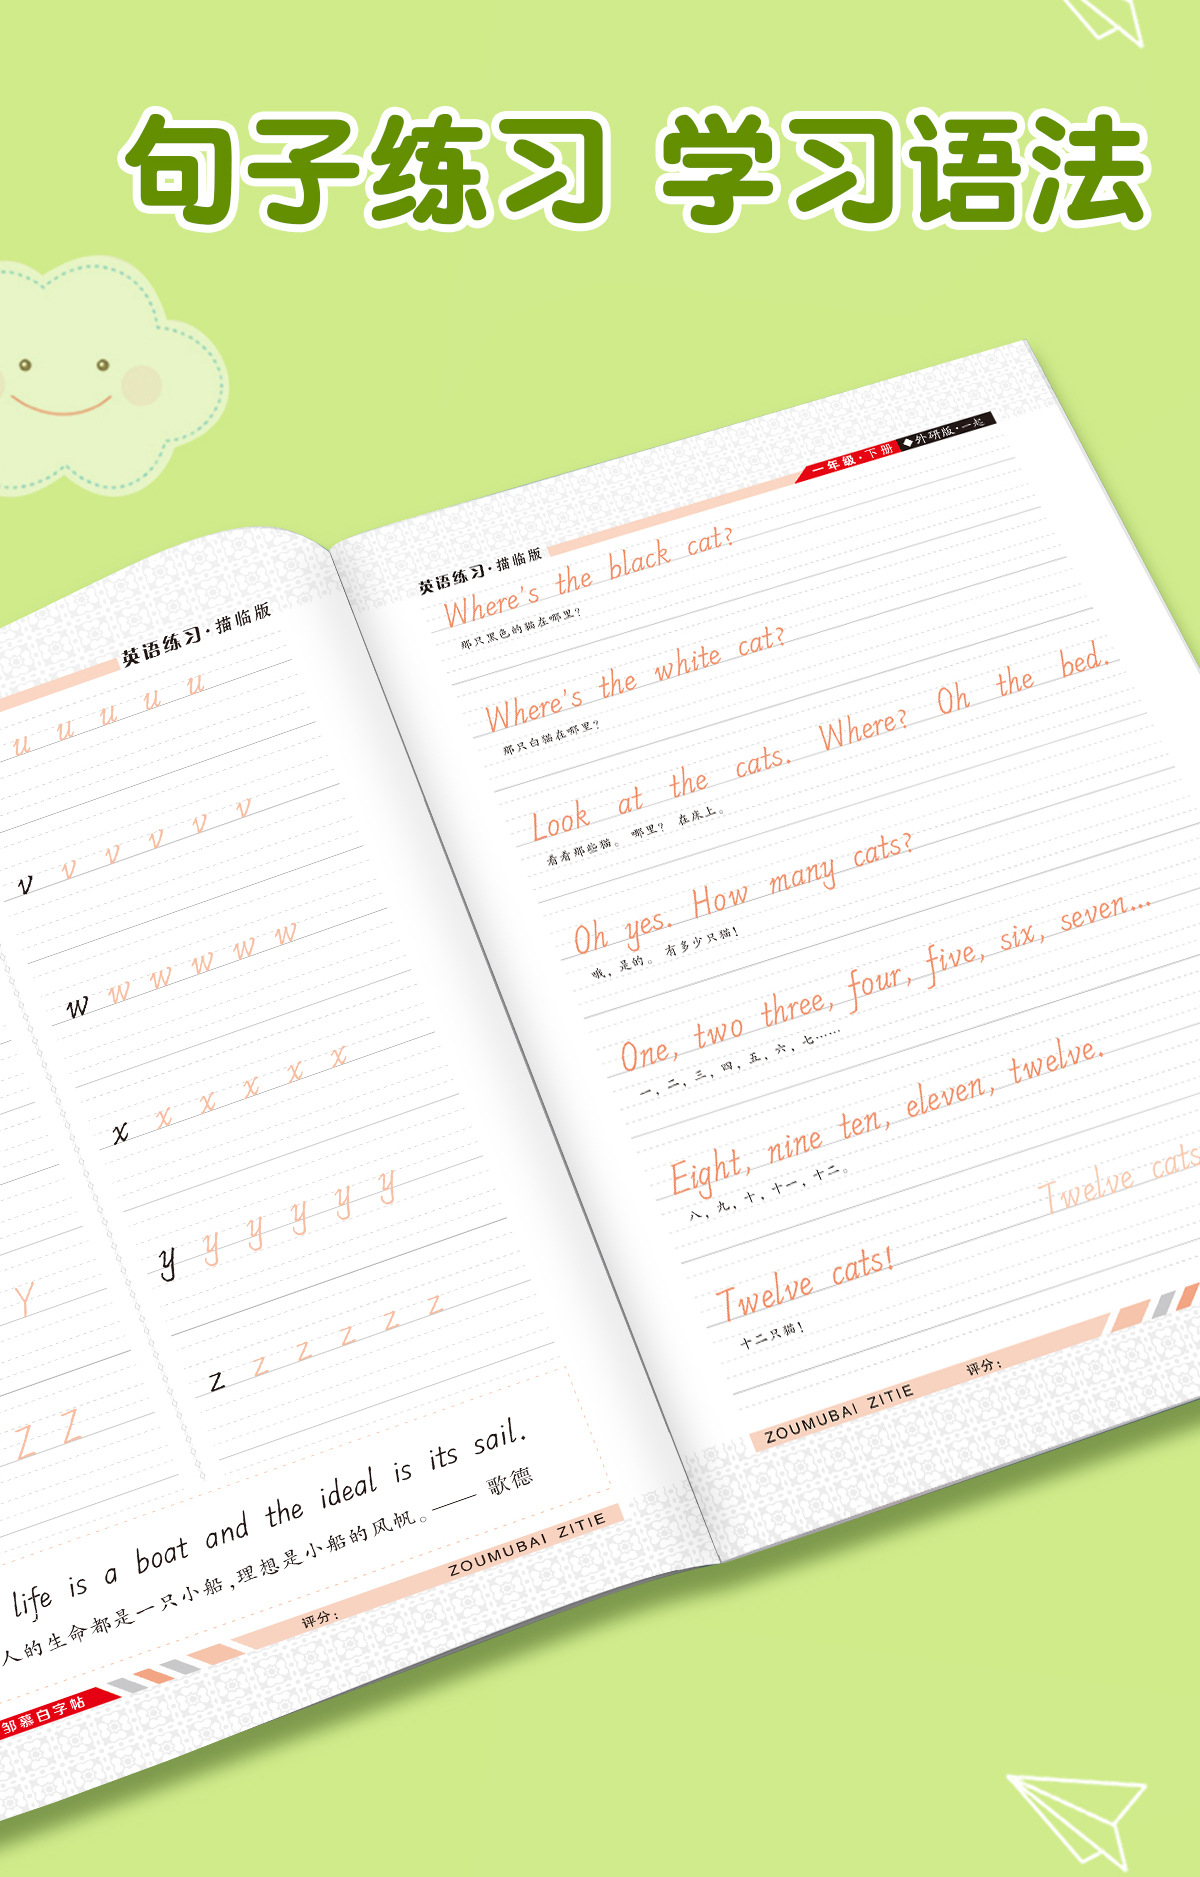 句子练习 学习语法
英语练习·描临版
u u u u u
v v v v v v
w w w w w w
x x x x x x
y y y y y y
z z z z z z
Y
Z Z
life is a boat and the ideal is its sail.
人的生命都是一只小船,理想是小船的风帆。—— 歌德
评分:
ZOUMUBAI ZITIE
邹慕白字帖
英语练习·描临版
一年级·下册
外研版·一起
Where's the black cat?
那只黑色的猫在哪里?
Where's the white cat?
那只白猫在哪里?
Look at the cats. Where? Oh the bed.
看看那些猫。 哪里? 在床上。
Oh yes. How many cats?
哦,是的。 有多少只猫!
One, two three, four, five, six, seven...
一,二,三,四,五,六,七……
Eight, nine ten, eleven, twelve.
八,九,十,十一,十二。
Twelve cats! Twelve cats
十二只猫!
ZOUMUBAI ZITIE
评分: